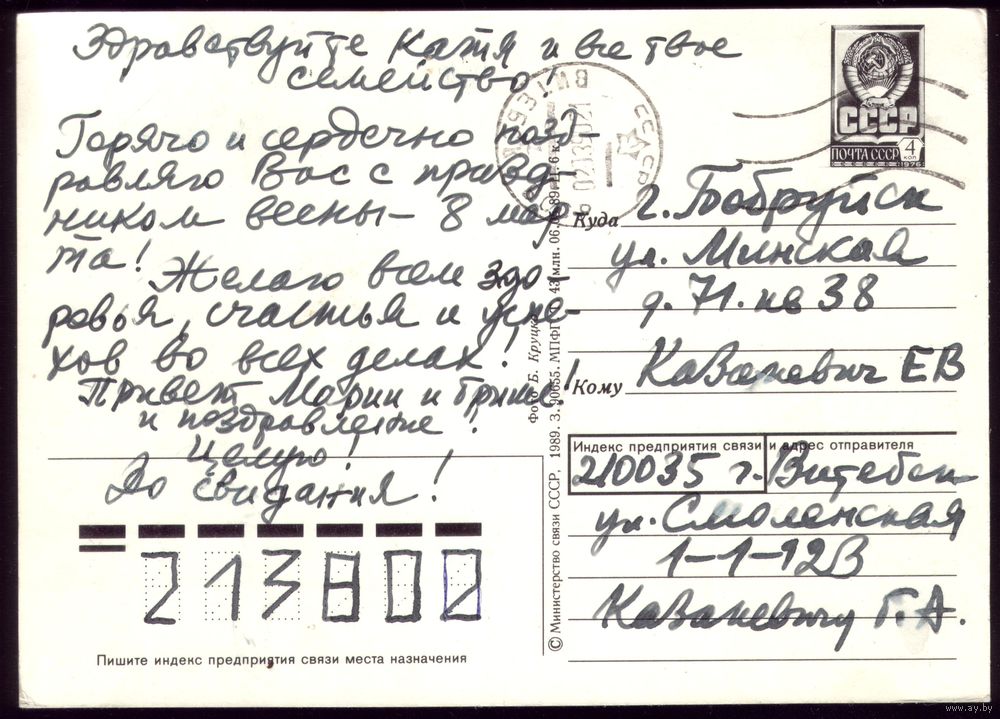 Здравствуйте Катя и все твое
семейство!
Горячо и сердечно позд-
равляю Вас с празд-
ником весны - 8 мар-
та!
Желаю всем здо-
ровья, счастья и успе-
хов во всех делах!
Привет Марии и Грише!
и поздравление!
Целую!
До свидания!
213802
Пишите индекс предприятия связи места назначения
© Министерство связи СССР, 1989. З. 90655. МПФГ. 43 млн. 06.89. Ц. 6 к.
Фото Б. Круцко
ВИТЕБСК
СССР
ПОЧТА СССР
4 коп
1976
Куда г. Бобруйск
ул. Минская
д. 71. кв 38
Кому Казакевич ЕВ
Индекс предприятия связи и адрес отправителя
210035 г. Витебск
ул. Смоленская
1-1-123
Казакевич Г. А.
www.ay.by